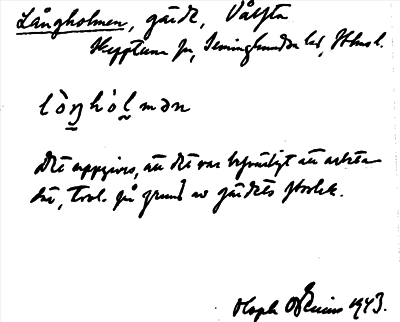 Långholmen, gärde, Vålsta
Skepptuna sn, Seminghundra hd, Sthms l.
lòŋhòlmən
Det uppgives, att det var besvärligt att arbeta
där, trol. på grund av gärdets storlek.
Oloph Odenius 1943.